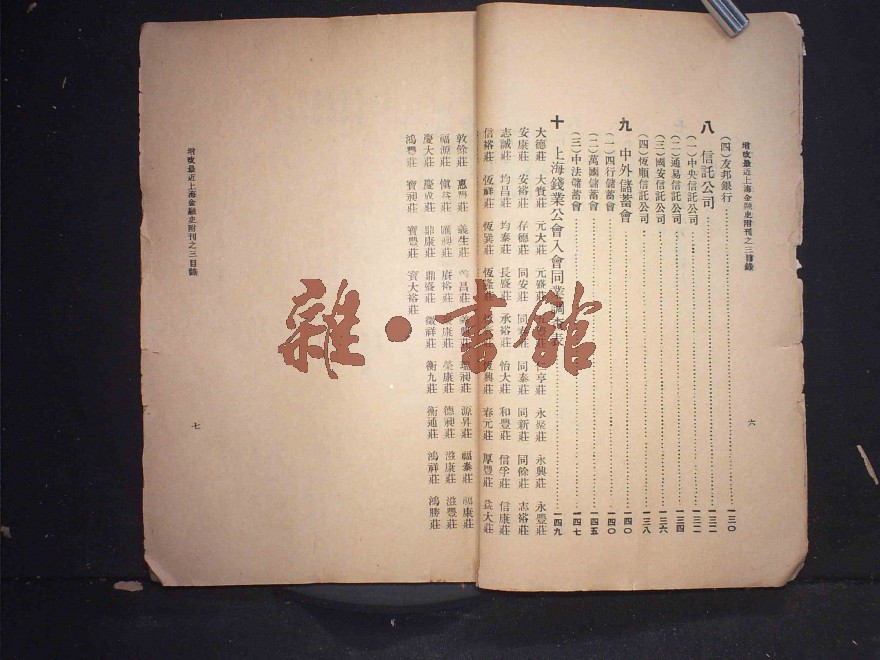 增改最近上海金融史附刊之三目錄
六
(四)友邦銀行 一三〇
八 信託公司 一三二
(一)中央信託公司 一三二
(二)通易信託公司 一三四
(三)國安信託公司 一三六
(四)恆順信託公司 一三八
九 中外儲蓄會 一四〇
(一)四行儲蓄會 一四〇
(二)萬國儲蓄會 一四五
(三)中法儲蓄會 一四七
十 上海錢業公會入會同業調查表 一四九
大德莊 大賚莊 元大莊 元盛莊 亨莊 永聚莊 永興莊 永豐莊
安康莊 安裕莊 存德莊 同安莊 同 同泰莊 同新莊 同餘莊 志裕莊
志誠莊 均昌莊 均泰莊 長盛莊 承裕莊 怡大莊 和豐莊 信孚莊 信康莊
信裕莊 恆祥莊 恆巽莊 恆隆莊 恆興莊 春元莊 厚豐莊 益大莊
敦餘莊 惠豐莊 義生莊 昌莊 瑞昶莊 源昇莊 福泰莊 福康莊
福源莊 慎益莊 匯昶莊 賡裕莊 康莊 榮康莊 德昶莊 滋康莊 滋豐莊
慶大莊 慶成莊 鼎康莊 鼎盛莊 徵祥莊 衡九莊 衡通莊 鴻祥莊 鴻勝莊
鴻豐莊 寶昶莊 寶豐莊 寶大裕莊
增改最近上海金融史附刊之三目錄
七
雜·書館